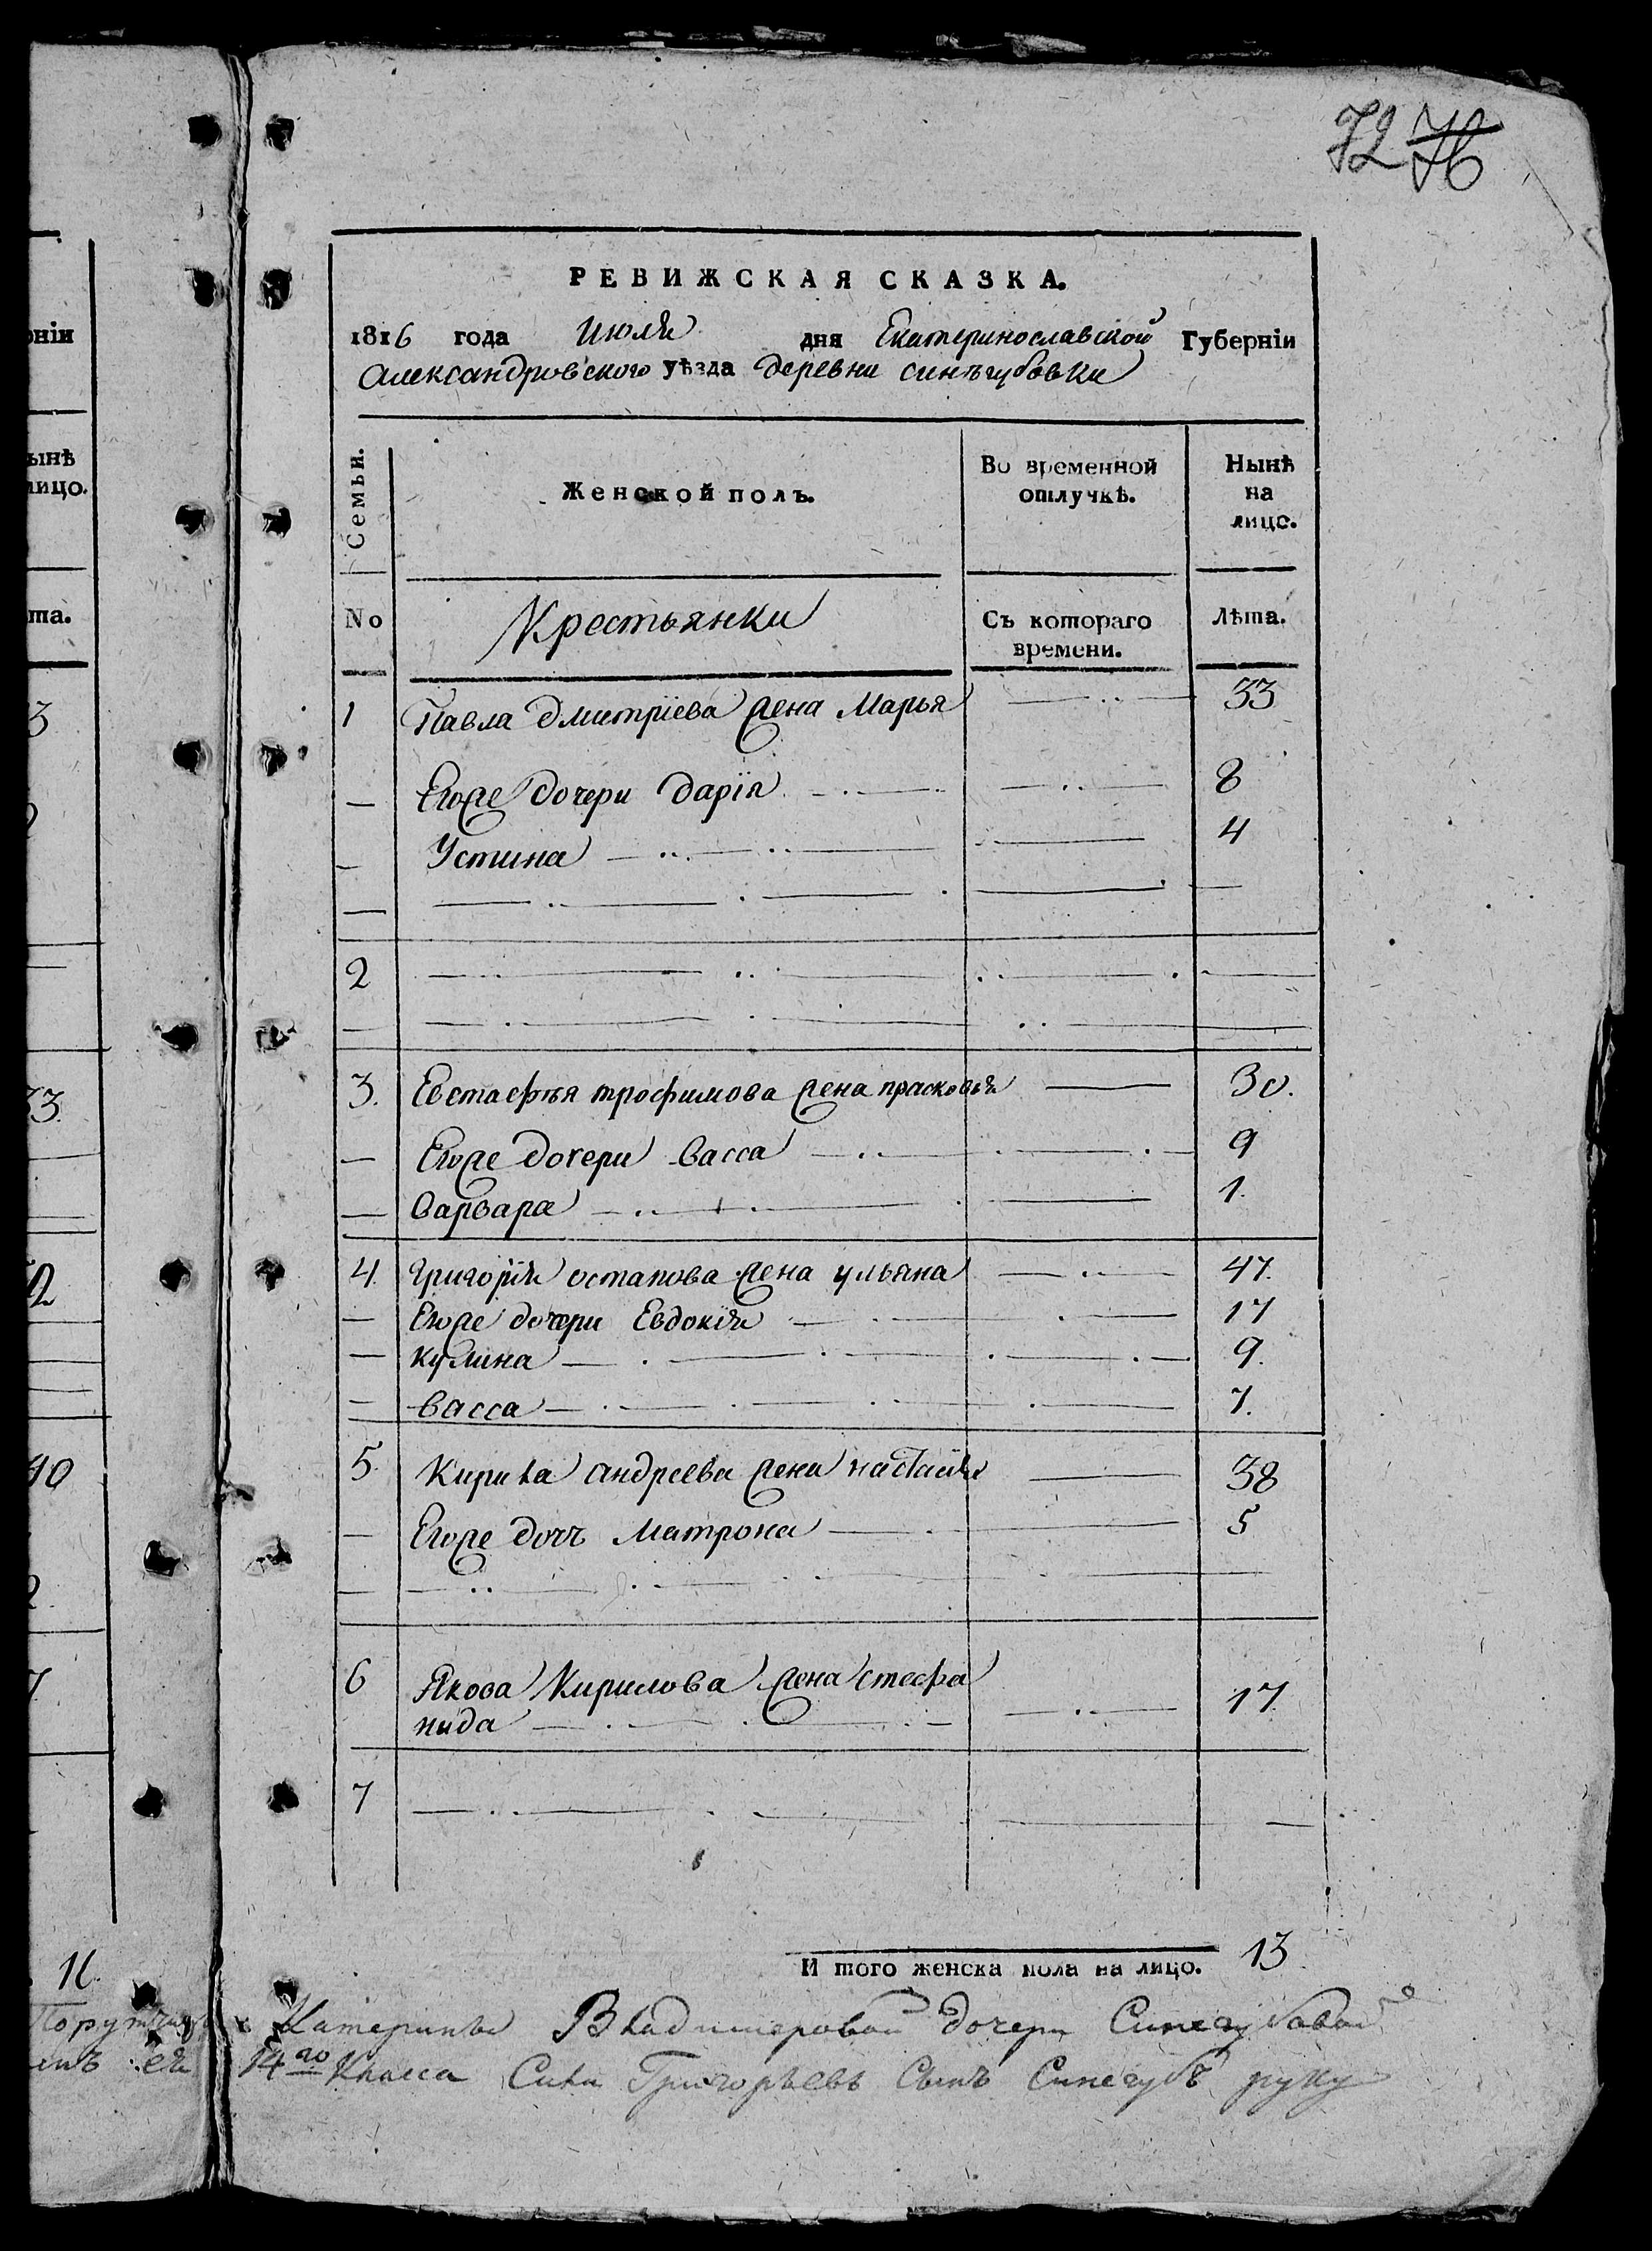 72 76
РЕВИЖСКАЯ СКАЗКА.
1816 года Июля дня Екатеринославской Губерніи
Александровского уѣзда деревни синѣгубовки
Семьи.
Женской полъ.
Во временной отлучкѣ.
Нынѣ на лицо.
No
Крестьянки
Съ котораго времени.
Лѣта.
1 Павла дмитріева жена Марья 33
Егоже дочери дарія 8
Устина 4
2
3. Евстафѣя трофимова жена прасковья 30.
Егоже дочери Васса 9
Варвара 1.
4. Григорія остапова жена ульяна 47.
Егоже дочери Евдокія 17
кулина 9.
Васса 7.
5. Кирила андреева жена настасія 38
Егоже дочь Матрона 5
6 Якова Кирилова жена стефа
нида 17
7
И того женска пола на лицо. 13
Катерины Владимеровой дочери Синегубовой
14го Класса Сила Григорьевъ Сынъ Синегубъ руку
рніи
ынѣ
лицо.
та.
3
33.
2
40
2.
7
11.
Порутчи
ея